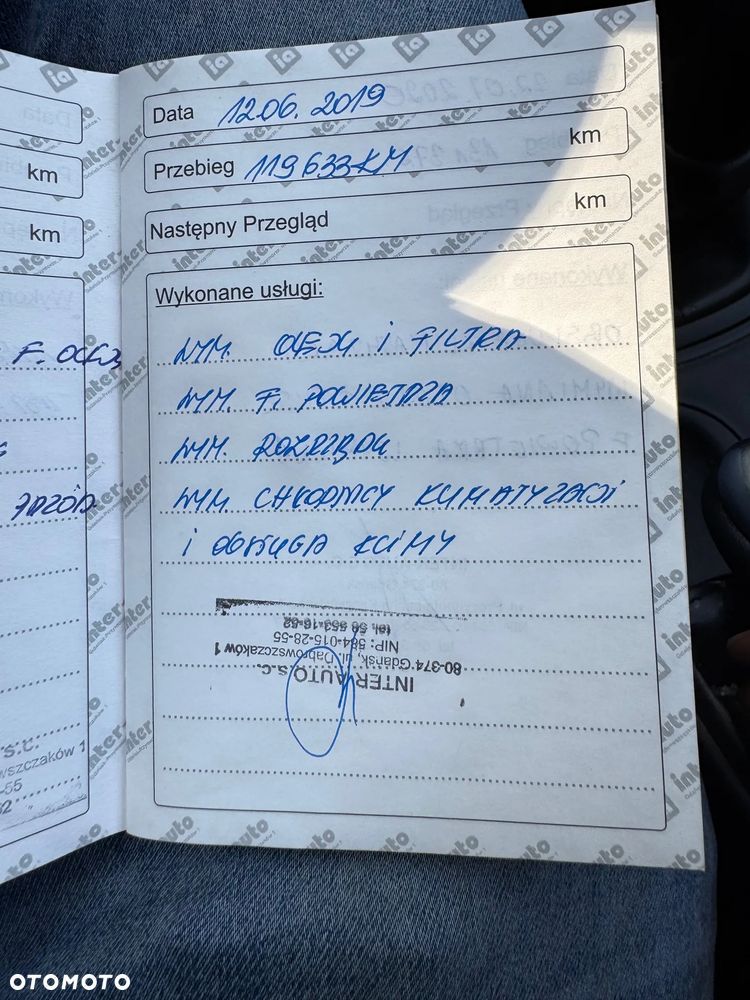 Data 12.06.2019
Przebieg 119 633 KM km
Następny Przegląd km
Wykonane usługi:
WYM. OLEJU i FILTRA
WYM. F. POWIETRZA
WYM. ROZRZĄDU
WYM. CHŁODNICY KLIMATYZACJI
i OBSŁUGA KLIMY
INTER AUTO s.c.
80-374 Gdańsk, ul. Dąbrowszczaków 1
NIP: 584-015-28-55
km
km
F. OLEJ
s.c.
wszczaków 1
-55
OTOMOTO